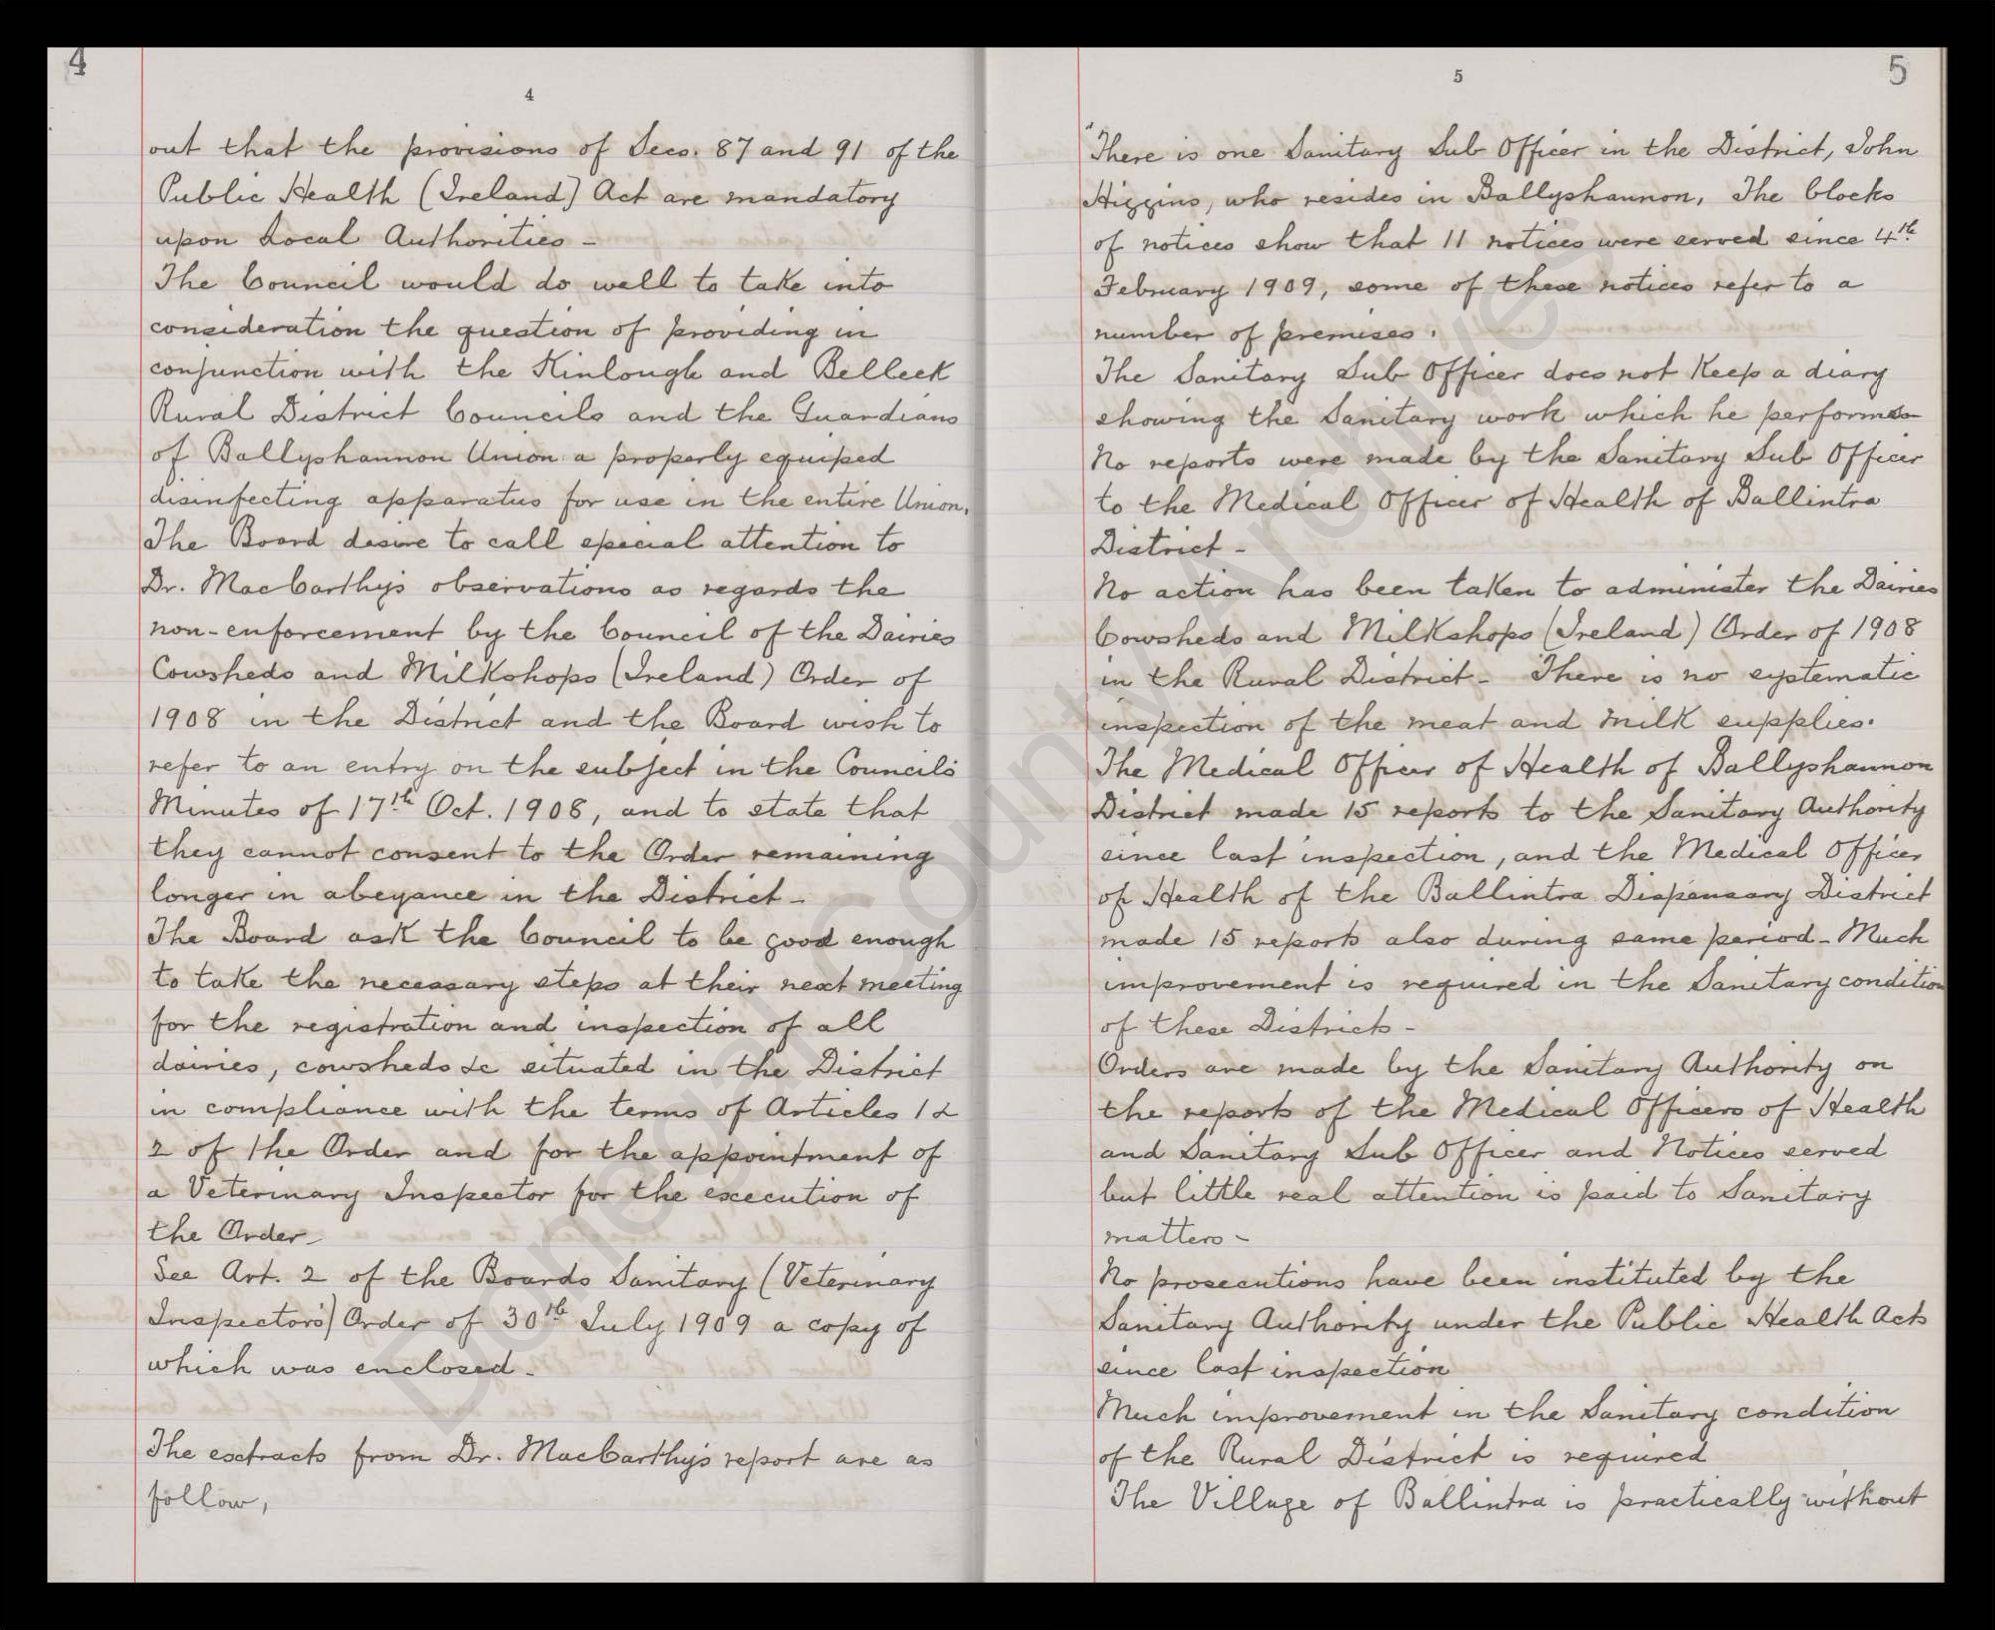 4
4
out that the provisions of Secs. 87 and 91 of the
Public Health (Ireland) Act are mandatory
upon Local Authorities -
The Council would do well to take into
consideration the question of providing in
conjunction with the Kinlough and Belleek
Rural District Councils and the Guardians
of Ballyshannon Union a properly equiped
disinfecting apparatus for use in the entire Union.
The Board desire to call special attention to
Dr. MacCarthy's observations as regards the
non-enforcement by the Council of the Dairies
Cowsheds and Milkshops (Ireland) Order of
1908 in the District and the Board wish to
refer to an entry on the subject in the Council's
Minutes of 17th Oct. 1908, and to state that
they cannot consent to the Order remaining
longer in abeyance in the District -
The Board ask the Council to be good enough
to take the necessary steps at their next meeting
for the registration and inspection of all
dairies, cowsheds &c situated in the District
in compliance with the terms of Articles 1 &
2 of the Order and for the appointment of
a Veterinary Inspector for the execution of
the Order
See Art. 2 of the Boards Sanitary (Veterinary
Inspectors') Order of 30th July 1909 a copy of
which was enclosed -
The extracts from Dr. MacCarthy's report are as
follow,
5
5
"There is one Sanitary Sub Officer in the District, John
Higgins, who resides in Ballyshannon, The blocks
of notices show that 11 notices were served since 4th
February 1909, some of these notices refer to a
number of premises.
The Sanitary Sub Officer does not keep a diary
showing the Sanitary work which he performs
No reports were made by the Sanitary Sub Officer
to the Medical Officer of Health of Ballintra
District -
No action has been taken to administer the Dairies
Cowsheds and Milkshops (Ireland) Order of 1908
in the Rural District - There is no systematic
inspection of the meat and milk supplies.
The Medical Officer of Health of Ballyshannon
District made 15 reports to the Sanitary Authority
since last inspection, and the Medical Officer
of Health of the Ballintra Dispensary District
made 15 reports also during same period - Much
improvement is required in the Sanitary condition
of these Districts -
Orders are made by the Sanitary Authority on
the reports of the Medical Officers of Health
and Sanitary Sub Officer and Notices served
but little real attention is paid to Sanitary
matters -
No prosecutions have been instituted by the
Sanitary Authority under the Public Health Acts
since last inspection
Much improvement in the Sanitary condition
of the Rural District is required
The Village of Ballintra is practically without
Donegal County Archives